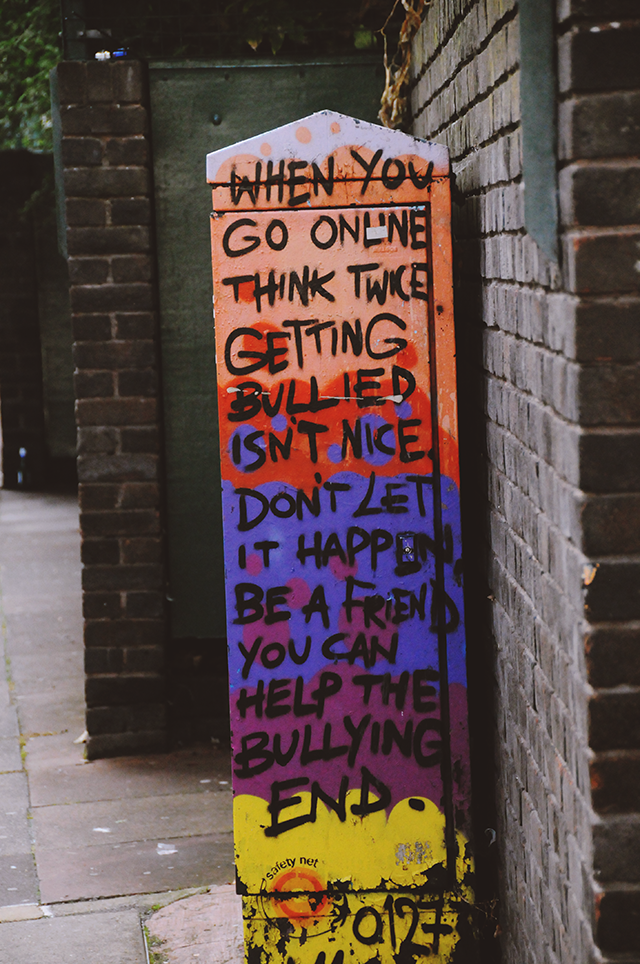 WHEN YOU
GO ONLINE
THINK TWICE
GETTING
BULLIED
ISN'T NICE.
DON'T LET
IT HAPPEN,
BE A FRIEND
YOU CAN
HELP THE
BULLYING
END.
safety net
0127